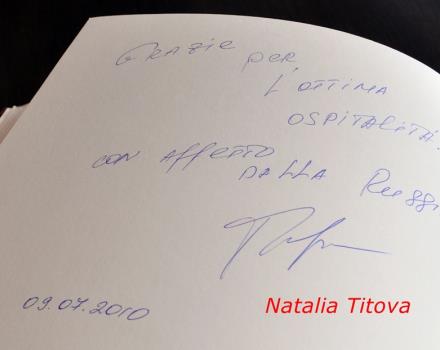 GRAZIE PER
L'OTTIMA
OSPITALITÀ.
CON AFFETTO
DALLA
09.07.2010
Natalia Titova